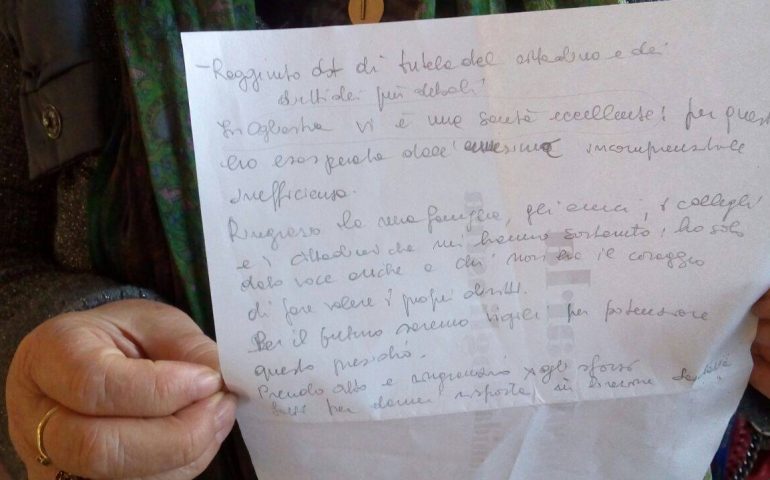 - Raggiunto dir di tutela del cittadino e dei
diritti dei più deboli
In Ogliastra vi è una sanità eccellente; per questo
ero esasperata dall'ennesima incomprensibile
inefficienza.
Ringrazio la mia famiglia, gli amici, i colleghi
e i cittadini che mi hanno sostenuto; ho solo
dato voce anche a chi non ha il coraggio
di fare valere i propri diritti.
Per il futuro saremo vigili per potenziare
questo presidio.
Prendo atto e ringrazio x gli sforzi
per darmi risposta, la direzione